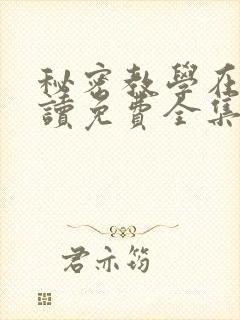 秘密教學在
讀免費全集
君亦筠